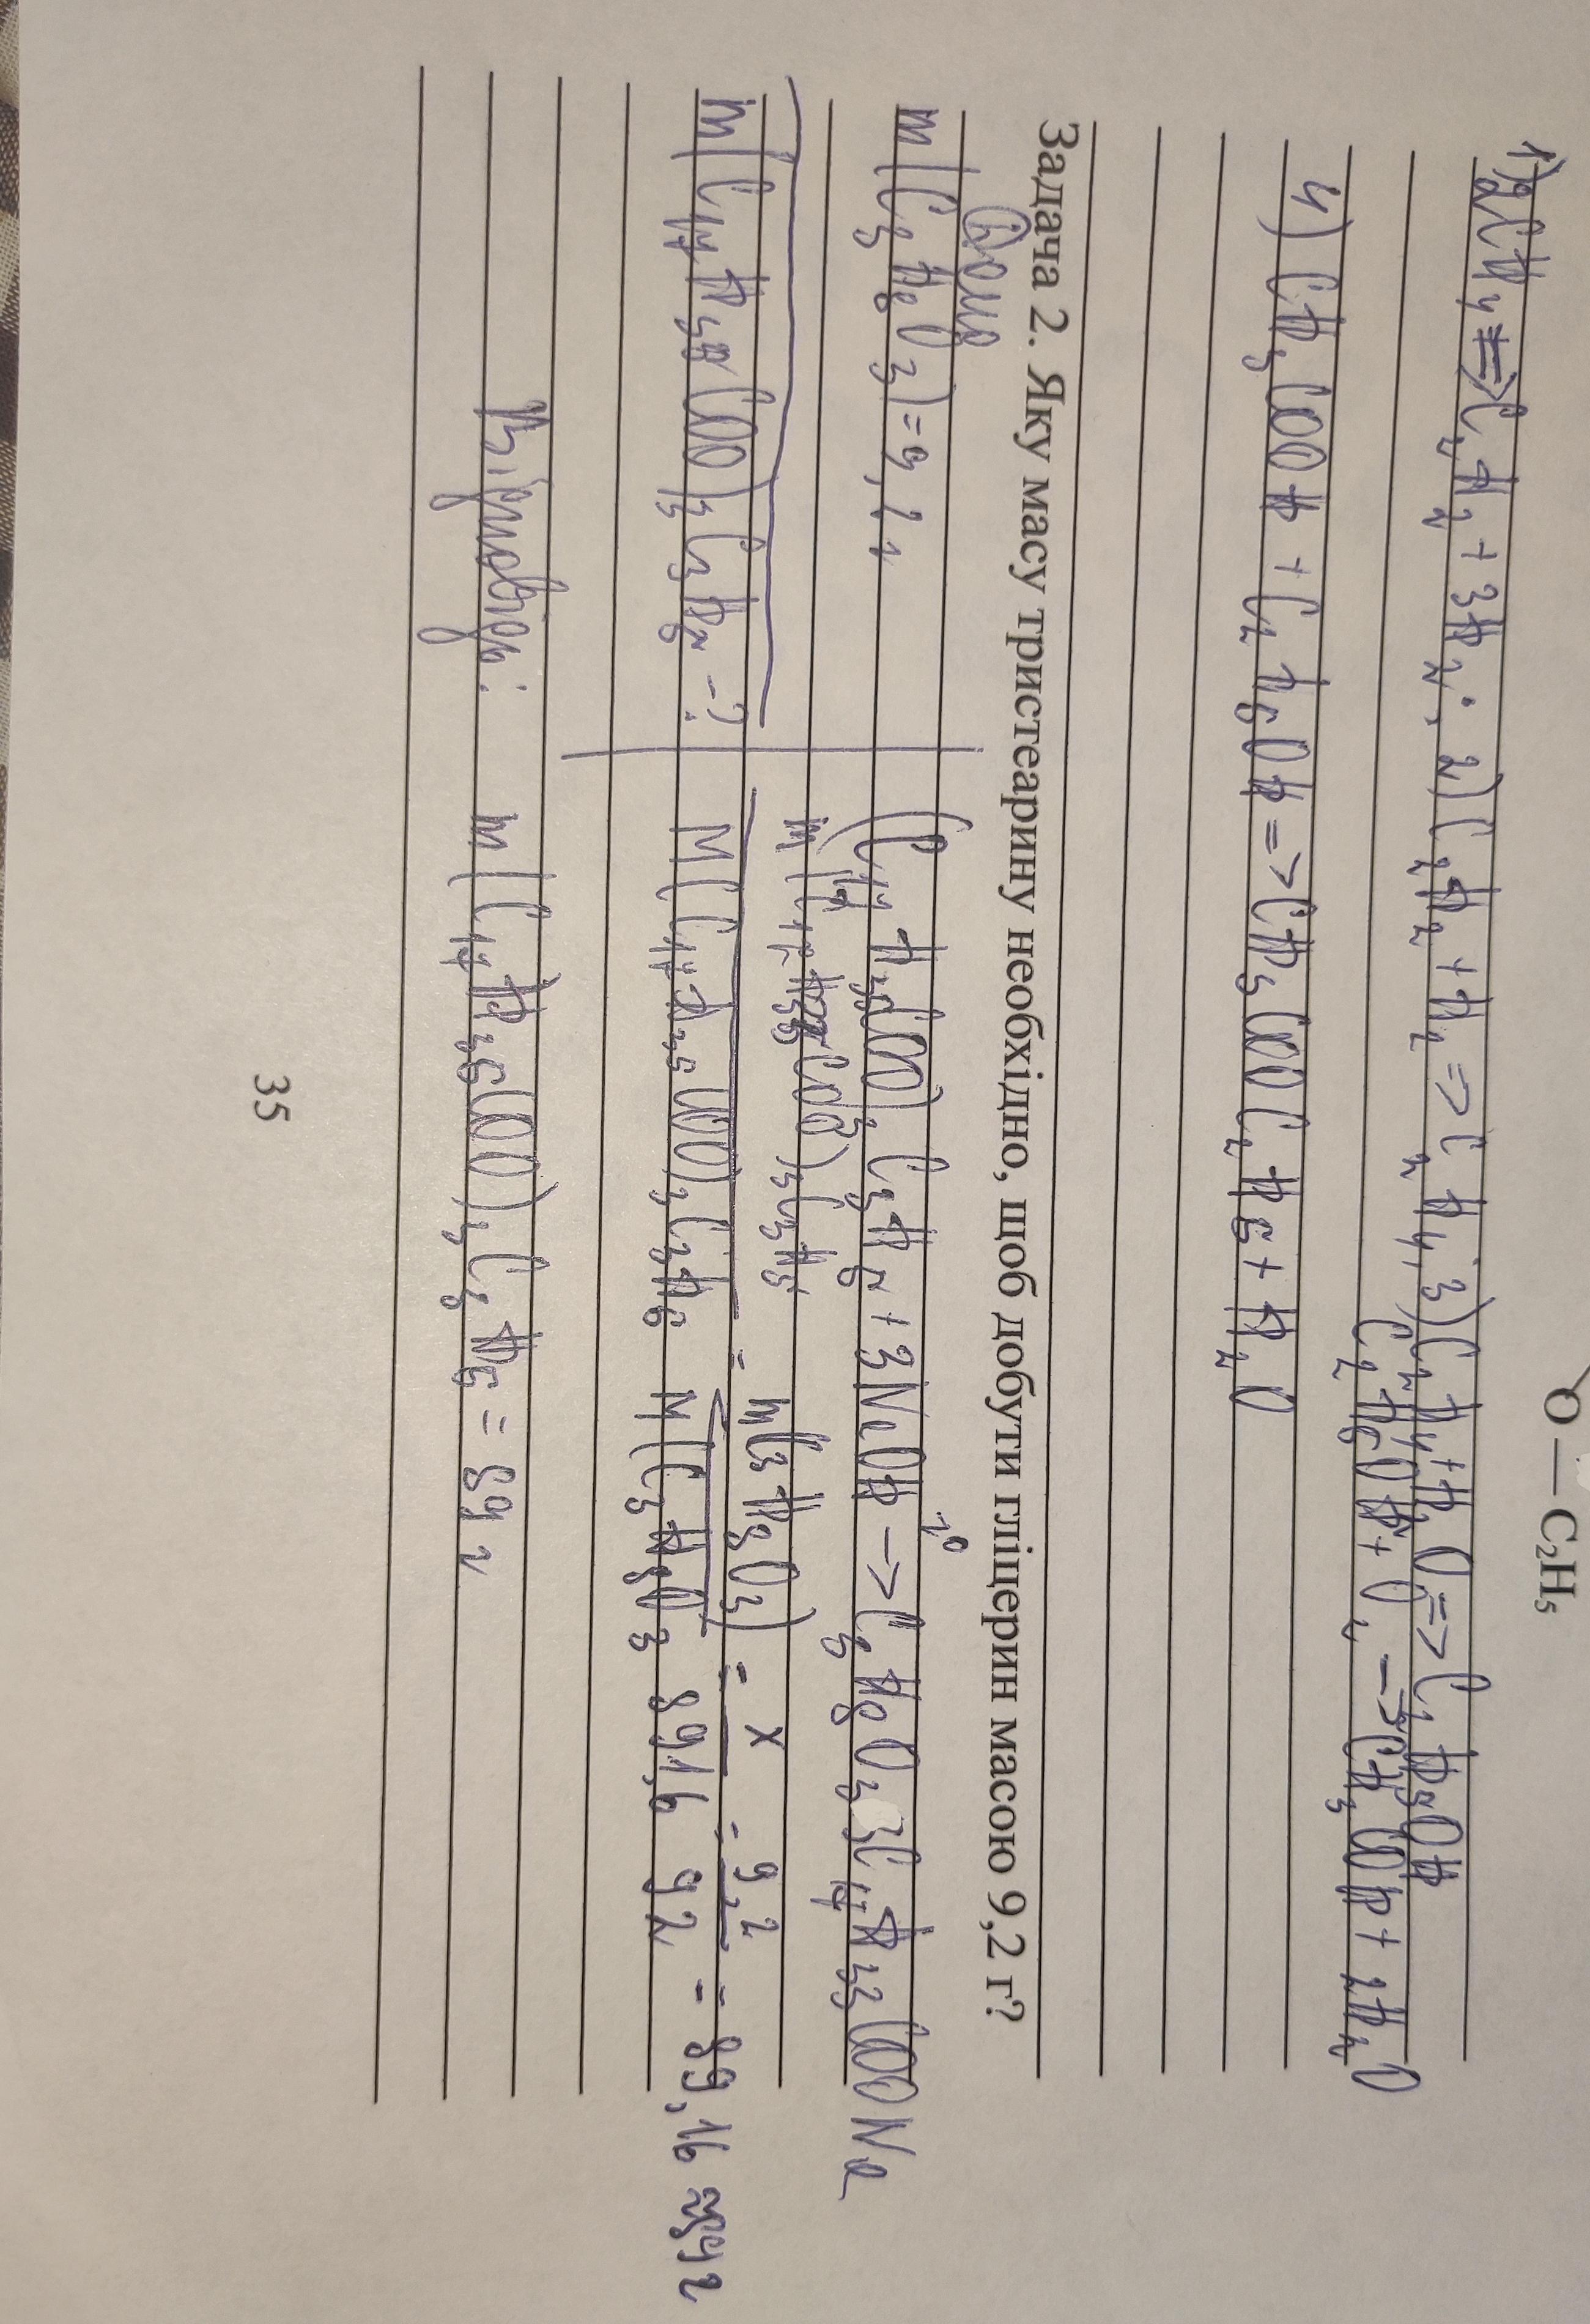 O — C₂H₅
1) 2CH₄ => C₂H₂ + 3H₂; 2) C₂H₂ + H₂ => C₂H₄; 3) C₂H₄ + H₂O => C₂H₅OH
C₂H₅OH + O₂ → CH₃COOH + H₂O
4) CH₃COOH + C₂H₅OH => CH₃COOC₂H₅ + H₂O
Задача 2. Яку масу тристеарину необхідно, щоб добути гліцерин масою 9,2 г?
m(C₃H₈O₃) = 9,2 г
(C₁₇H₃₅COO)₃C₃H₅ + 3NaOH → t° C₃H₈O₃ 3C₁₇H₃₅COONa
m(C₁₇H₃₅COO)₃C₃H₅ -?
m(C₁₇H₃₅COO)₃C₃H₅ = m(C₃H₈O₃) = x = 9,2 = 89,16 ≈ 89 г
M(C₁₇H₃₅COO)₃C₃H₅ M(C₃H₈O₃ 891,6 92
Відповідь: m(C₁₇H₃₅COO)₃C₃H₅ = 89 г
35